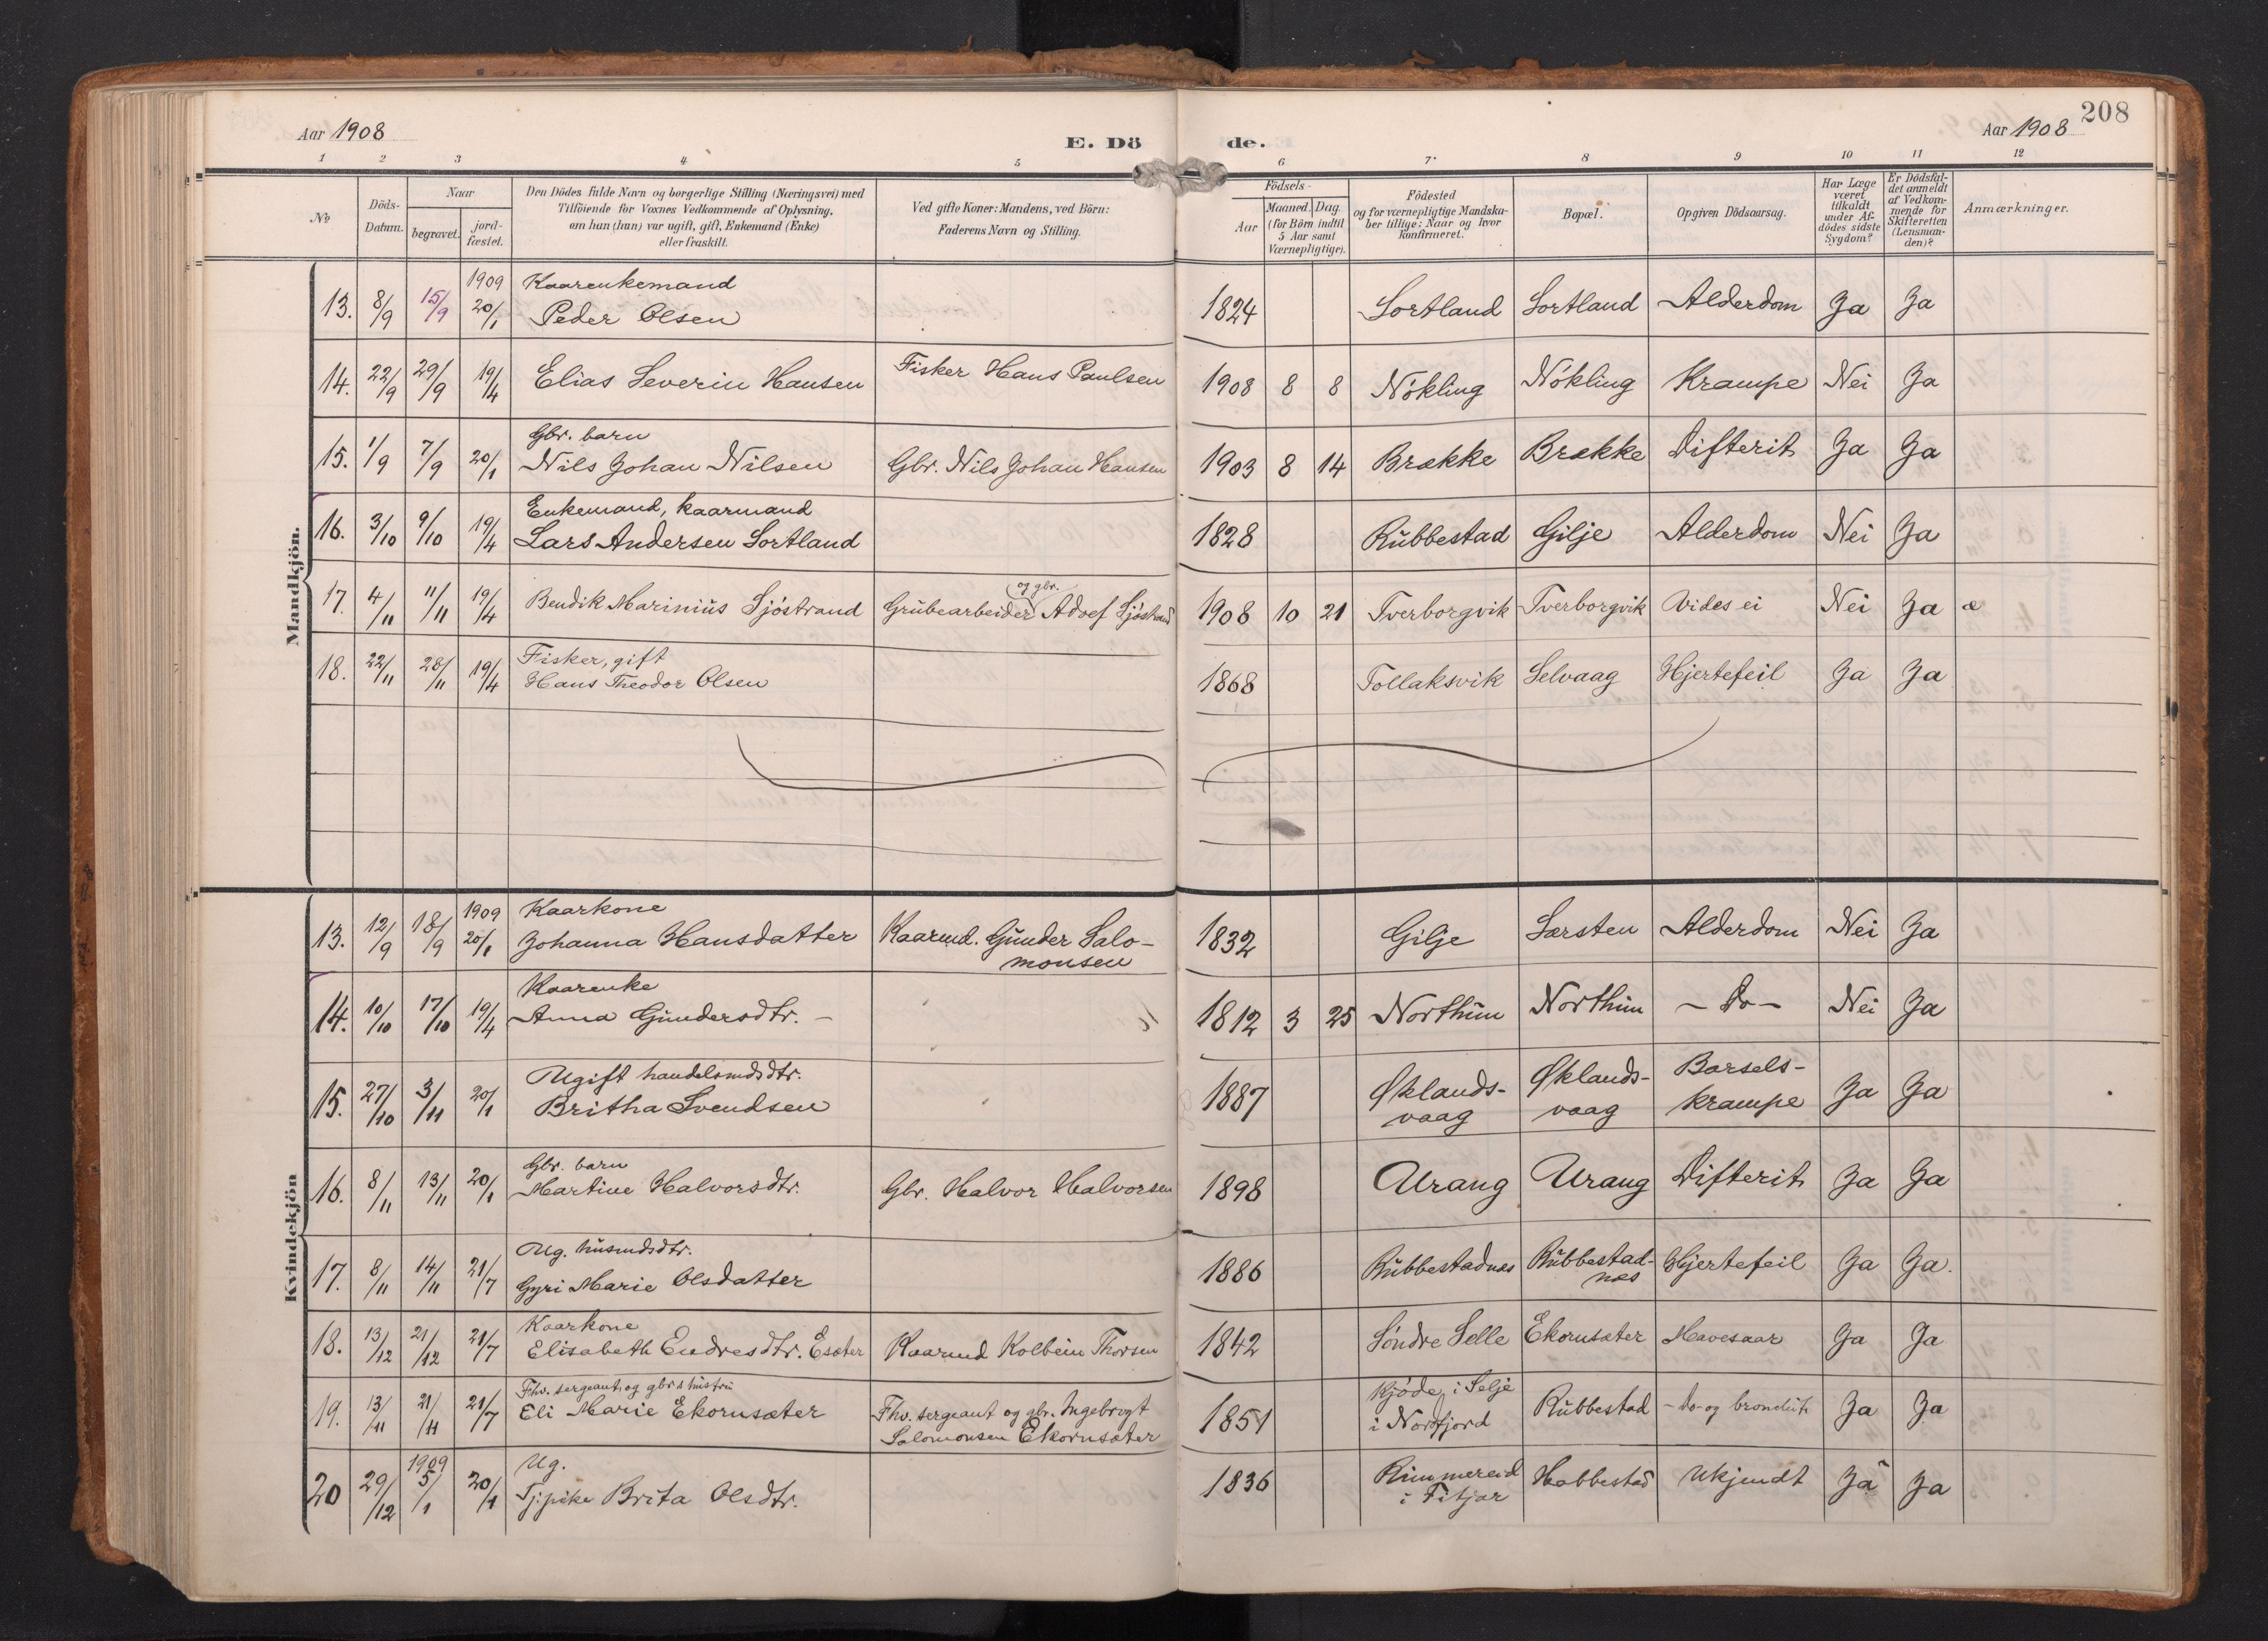 208
Aar 1908
E. Dö
de.
Aar 1908
1 2 3 4 5 6 7 8 9 10 11 12
No
Döds-Datum.
Naar
begravet.
jord-fæstet.
Den Dödes fulde Navn og borgerlige Stilling (Næringsvei) med
Tilföiende for Voxnes Vedkommende af Oplysning,
om han (hun) var ugift, gift, Enkemand (Enke)
eller fraskilt.
Ved gifte Koner: Mandens, ved Börn:
Faderens Navn og Stilling.
Födsels-
Aar
Maaned. Dag.
(for Börn indtil
5 Aar samt
Værnepligtige).
Födested
og for værnepligtige Mandska-
ber tillige: Naar og hvor
konfirmeret.
Bopæl.
Opgiven Dödsaarsag.
Har Læge
været
tilkaldt
under Af-
dödes sidste
Sygdom?
Er Dödsfal-
det anmeldt
af Vedkom-
mende for
Skifteretten
(Lensman-
den)?
Anmærkninger.
Mandkjön.
1909 Kaarenkemand
13. 8/9 15/9 20/1 Peder Olsen 1824 Sortland Sortland Alderdom Ja Ja
14. 22/9 29/9 19/4 Elias Severin Hansen Fisker Hans Paulsen 1908 8 8 Nökling Nökling Krampe Nei Ja
Gbr. barn
15. 1/9 7/9 20/1 Nils Johan Nilsen Gbr. Nils Johan Hansen 1903 8 14 Brække Brække Difterit Ja Ja
Enkemand, kaarmand
16. 3/10 9/10 19/4 Lars Andersen Sortland 1828 Rubbestad Gilje Alderdom Nei Ja
og gbr.
17. 4/11 11/11 19/4 Bendik Marinius Sjöstrand Grubearbeider Adolf Sjöstrand 1908 10 21 Tverborgvik Tverborgvik Vides ei Nei Ja
Fisker, gift
18. 22/11 28/11 19/4 Hans Theodor Olsen 1868 Tollaksvik Selvaag Hjertefeil Ja Ja
Kvindekjön
1909 Kaarkone
13. 12/9 18/9 20/1 Johanna Hansdatter Kaarmd. Gunder Salo-
monsen 1832 Gilje Særsten Alderdom Nei Ja
Kaarenke
14. 10/10 17/10 19/4 Anna Gundersdtr. - 1812 3 25 Northun Northun - Do - Nei Ja
Ugift handelsmdsdtr.
15. 27/10 3/11 20/1 Britha Svendsen 1887 Øklands-
vaag Øklands-
vaag Barsels-
krampe Ja Ja
Gbr. barn
16. 8/11 13/11 20/1 Martine Halvorsdtr. Gbr. Halvor Halvorsen 1898 Urang Urang Difterit Ja Ja
Ug. husmdsdtr.
17. 8/11 14/11 21/7 Gyri Marie Olsdatter 1886 Rubbestadnæs Rubbestad-
næs Hjertefeil Ja Ja.
Kaarkone
18. 13/12 21/12 21/7 Elisabeth Endresdtr. Esæter Kaarmd Kolbein Thorsen 1842 Söndre Selle Ekornsæter Mavesaar Ja Ja
Fhv. sergeant og gbr's hustru
19. 13/11 21/11 21/7 Eli Marie Ekornsæter Fhv. sergeant og gbr. Ingebrigt
Salomonsen Ekornsæter 1851 Kjöde i Selje
i Nordfjord Rubbestad - Do - og bronchit Ja Ja
1909 Ug.
20 29/12 5/1 20/1 Tj.pike Brita Olsdtr. 1836 Rimmereid
i Fitjar Habbestad Ukjendt Ja Ja